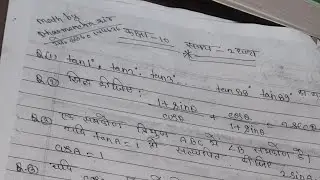 math by
Dharmendra sir
कक्षा = 10
समय = 2 घण्टा
Q.(1) tan1° tan2° tan3° tan88° tan89°
Q.(2) सिद्ध कीजिए: (1+sinθ)/cosθ + cosθ/(1+sinθ) = 2secθ
Q.(3) एक समकोण त्रिभुज ABC में ∠B समकोण है।
यदि tanA = 1 तो सत्यापित कीजिए 2 sinA
cosA = 1
Q.(3) यदि